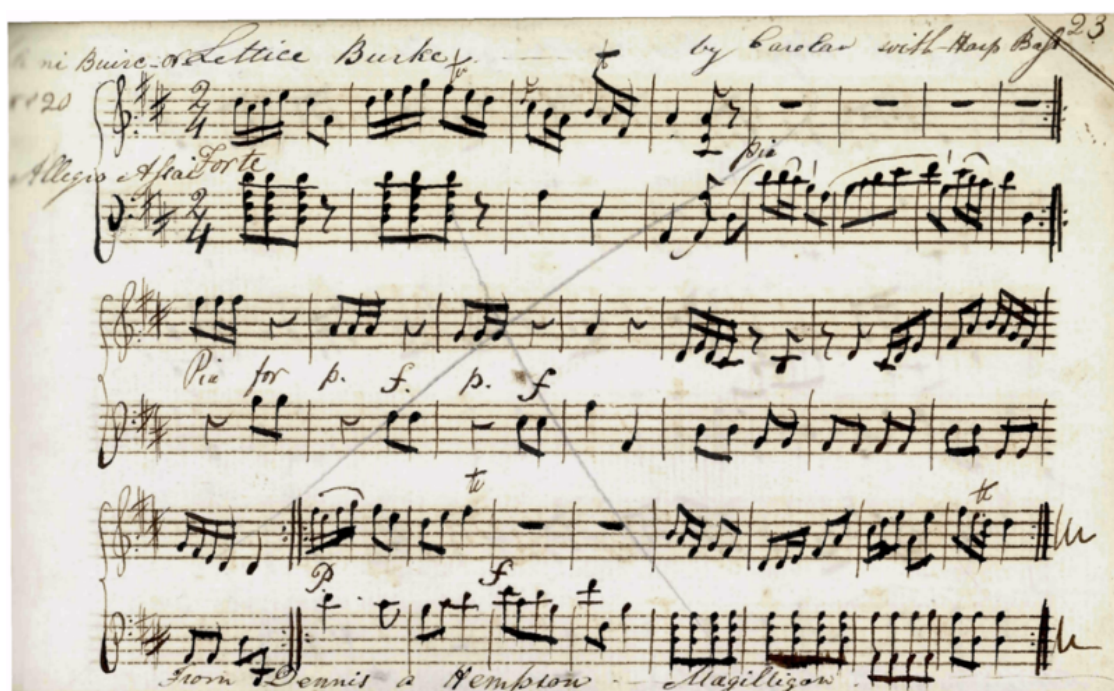 23
ni Buire-or Lettice Burke by Carolan with Harp Bass
20
2 4
Allegro Assai Forte
pia
2 4
Pia for p. f. p. f
tr tr
P. f
From Dennis a Hempson - Magilligan.